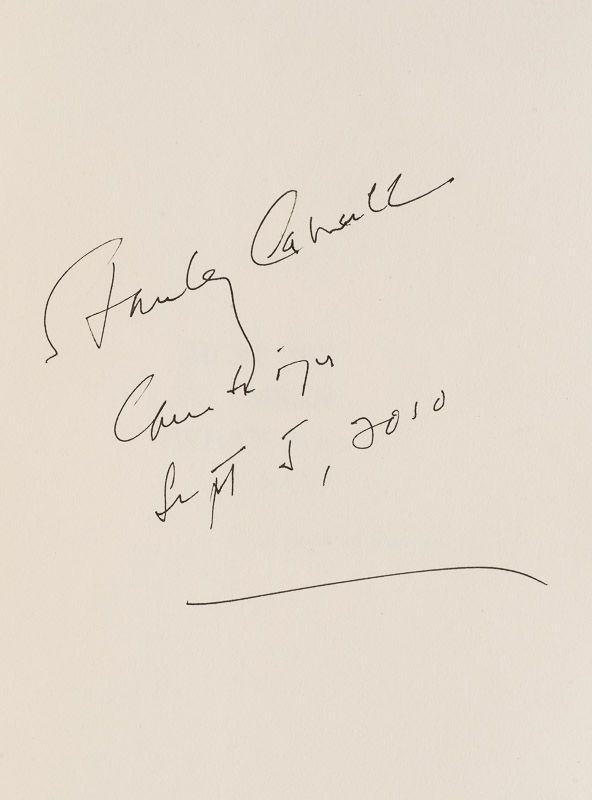 Stanley Cavell
Cambridge
Sept 5, 2010